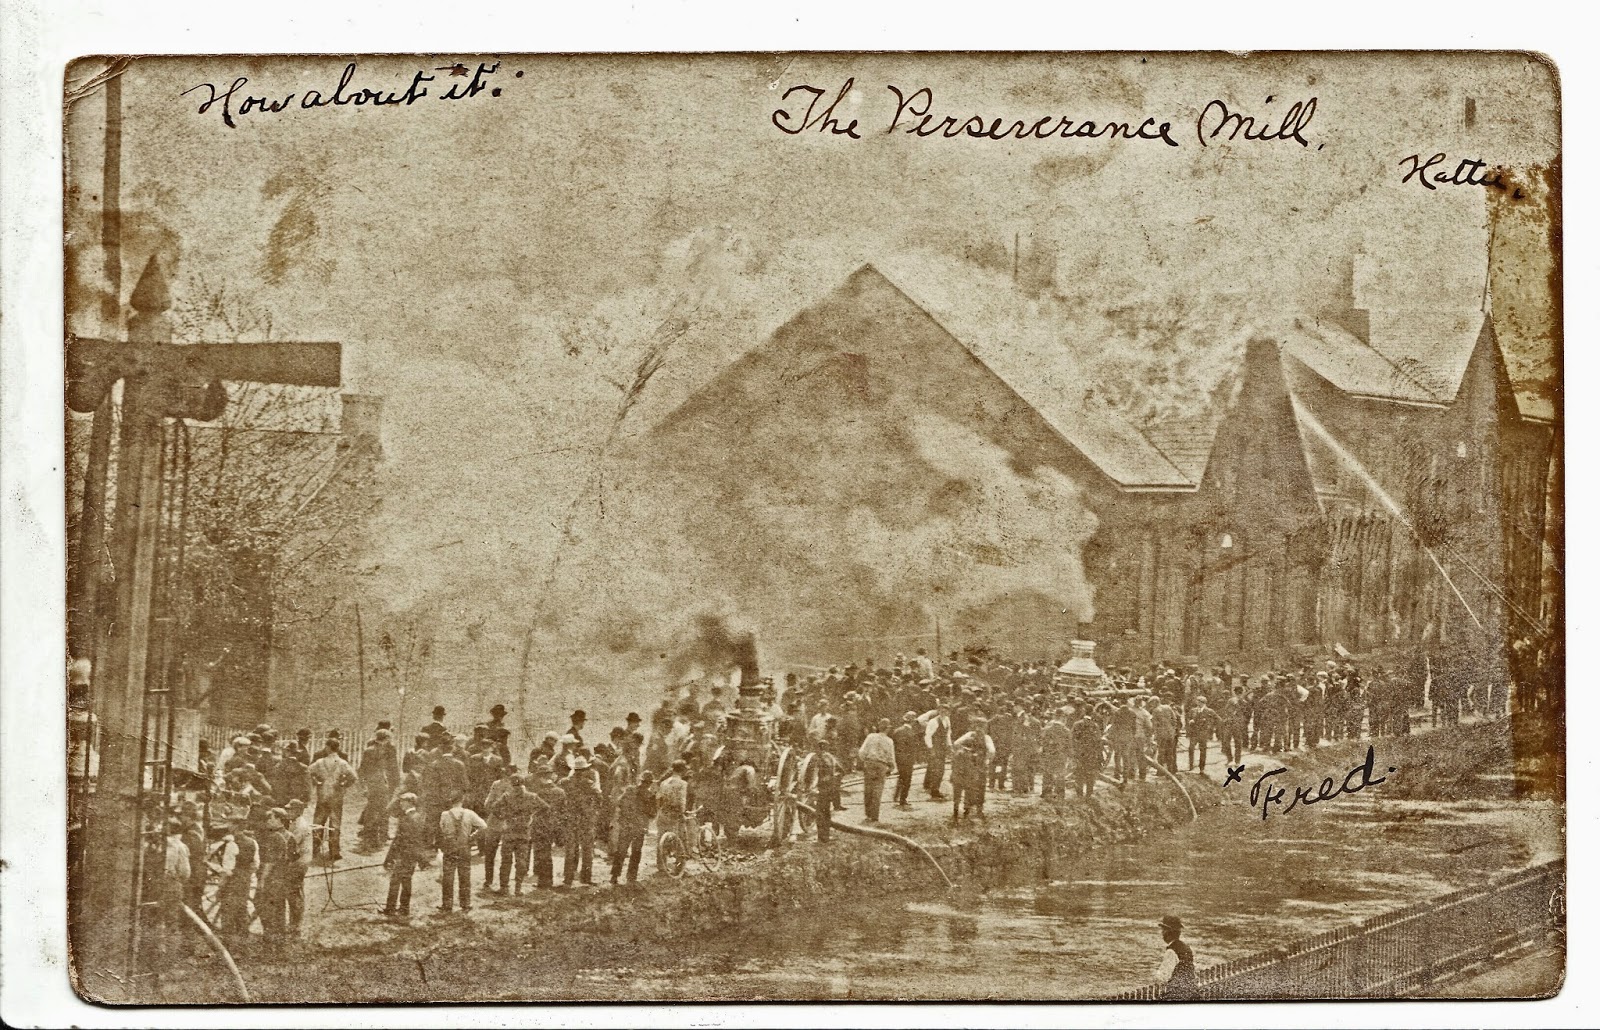 How about it.
The Perserverance Mill.
Hattie.
x Fred.